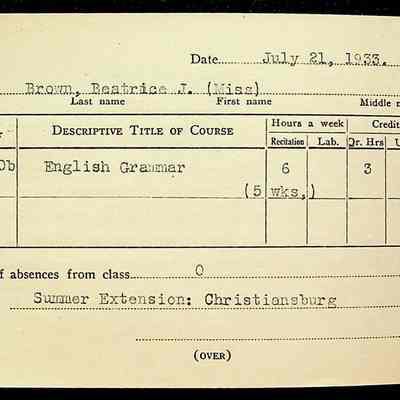 Date July 21, 1933.
Brown, Beatrice J. (Miss)
Last name First name Middle
DESCRIPTIVE TITLE OF COURSE Hours a week Credit
Recitation Lab. Qr. Hrs
0b English Grammar 6 3
(5 wks.)
f absences from class 0
Summer Extension: Christiansburg
(OVER)